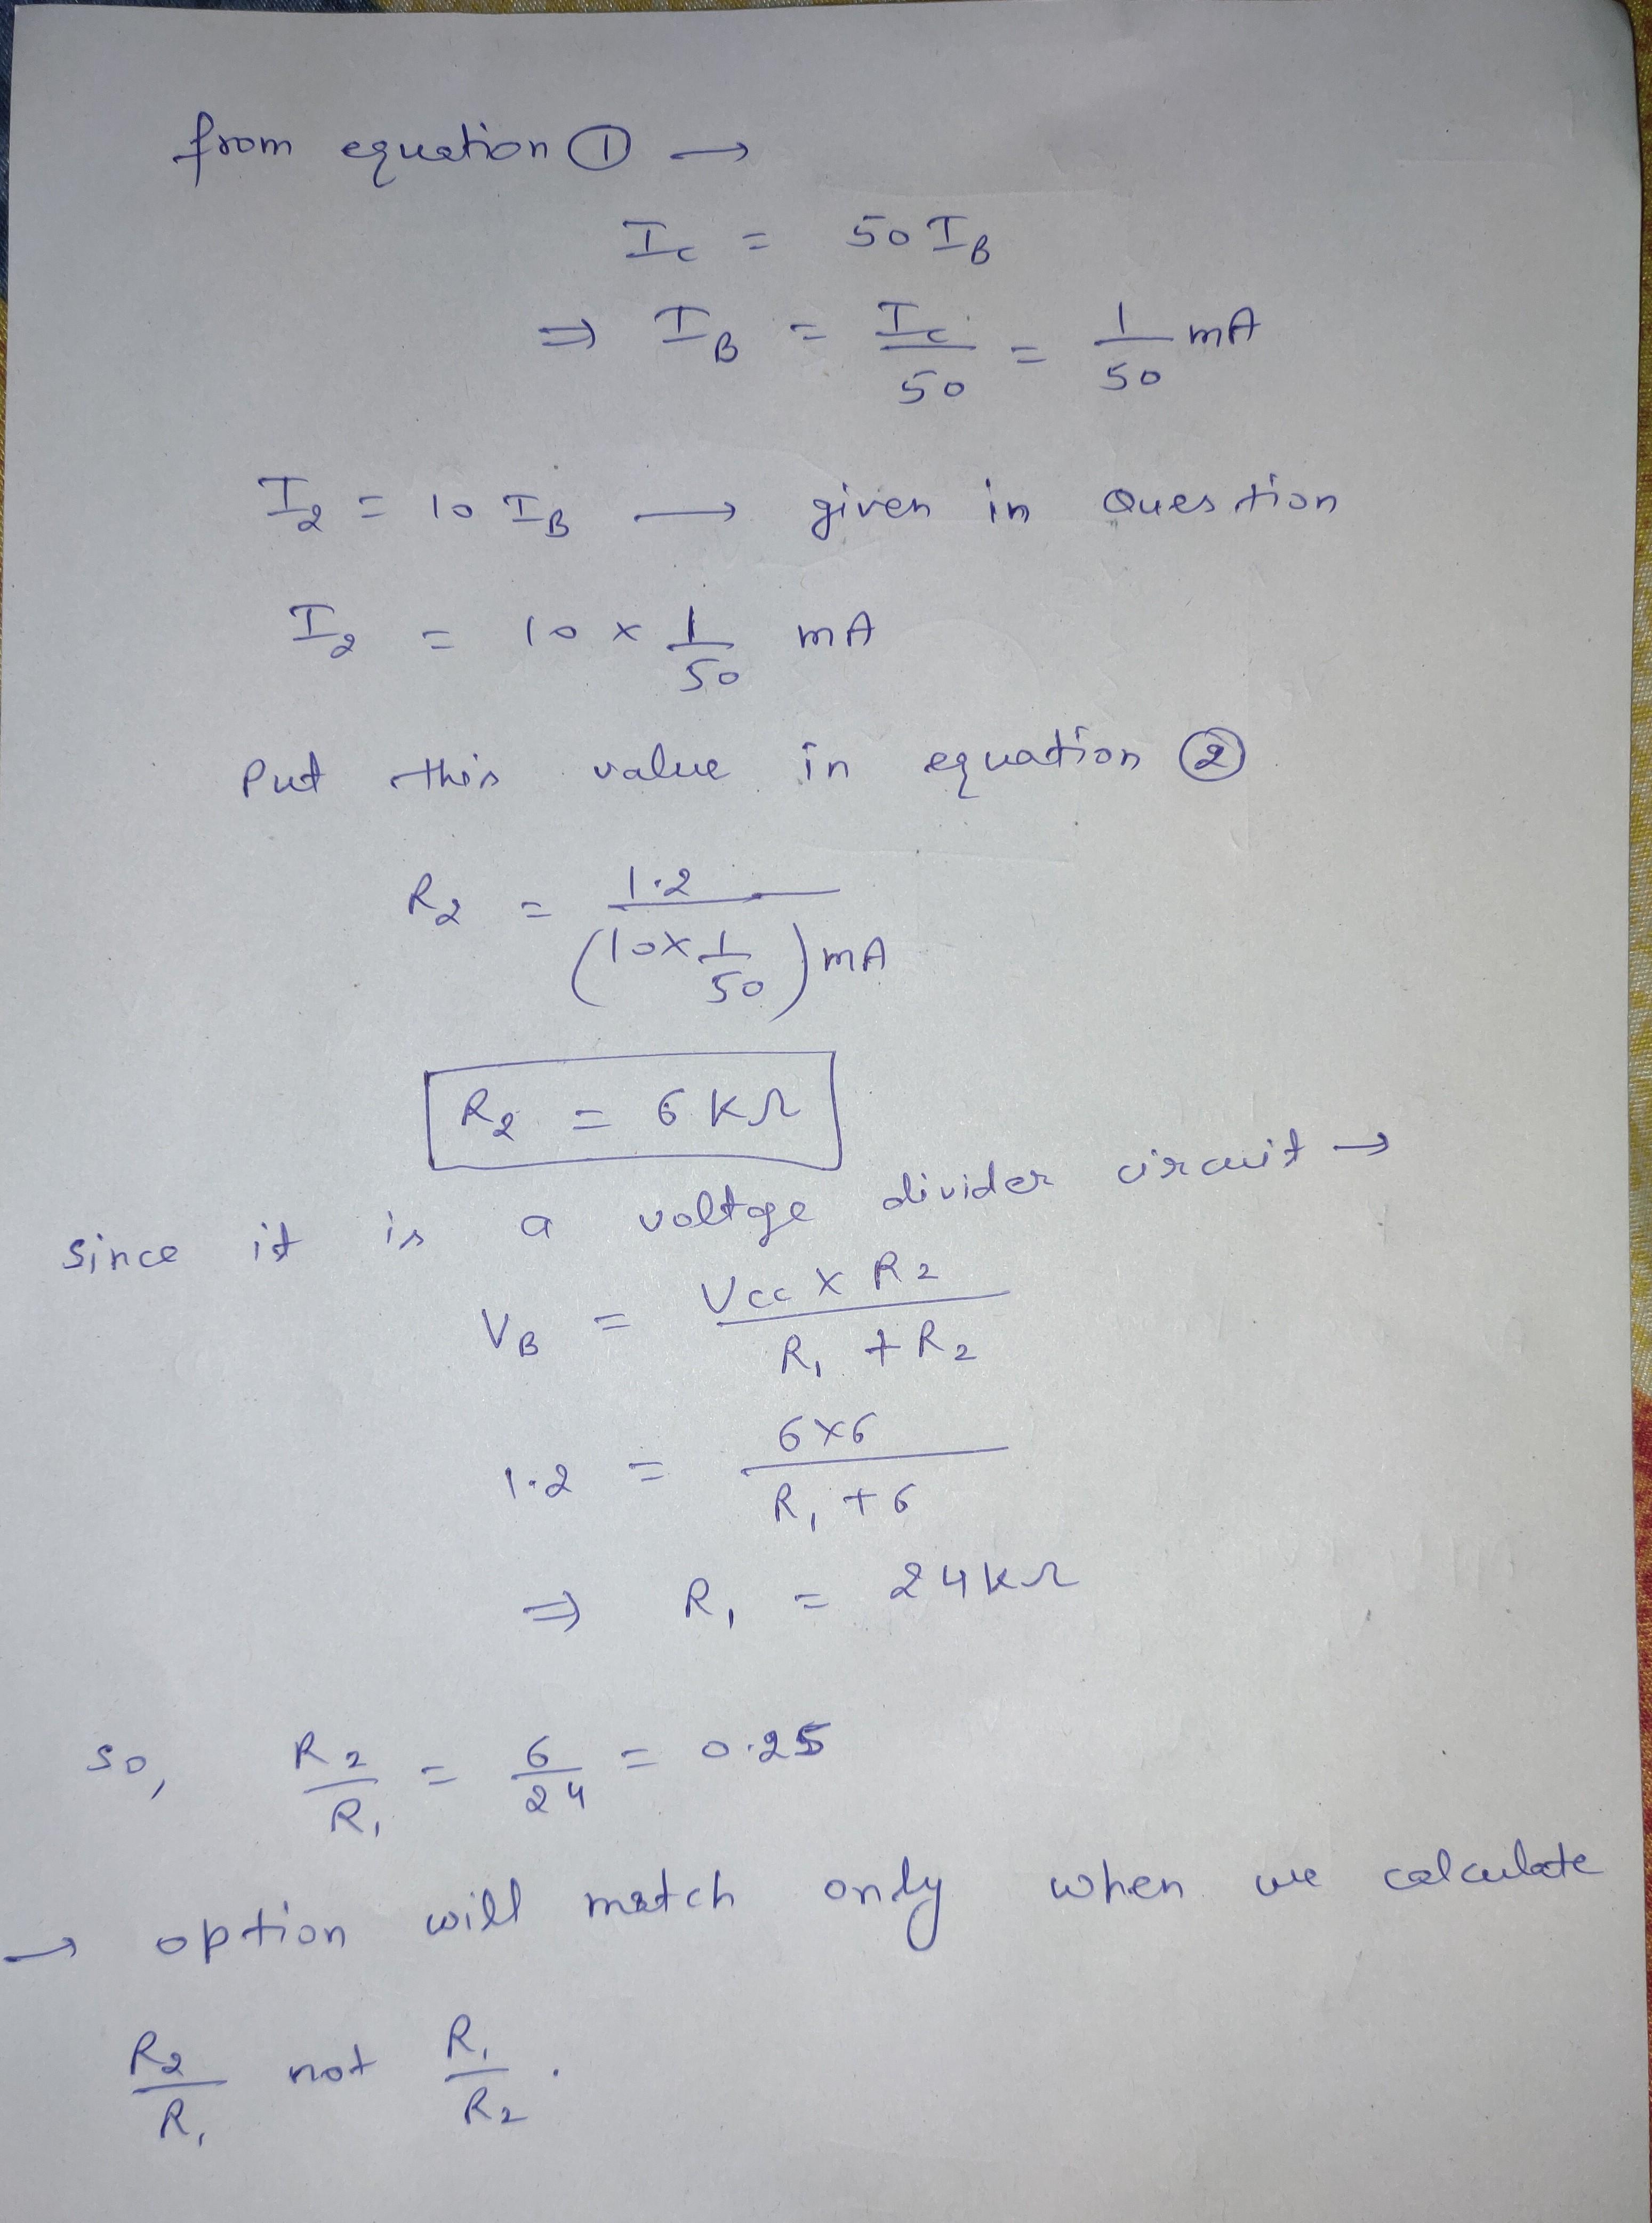 from equation ① →
I_C = 50 I_B
⇒ I_B = I_C/50 = 1/50 mA
I_2 = 10 I_B → given in Question
I_2 = 10 × 1/50 mA
Put this value in equation ②
R_2 = 1.2/(10×1/50) mA
R_2 = 6 KΩ
Since it is a voltage divider circuit →
V_B = Vcc × R_2/R_1 + R_2
1.2 = 6×6/R_1 + 6
⇒ R_1 = 24 KΩ
so, R_2/R_1 = 6/24 = 0.25
→ option will match only when we calculate
R_2/R_1 not R_1/R_2 .